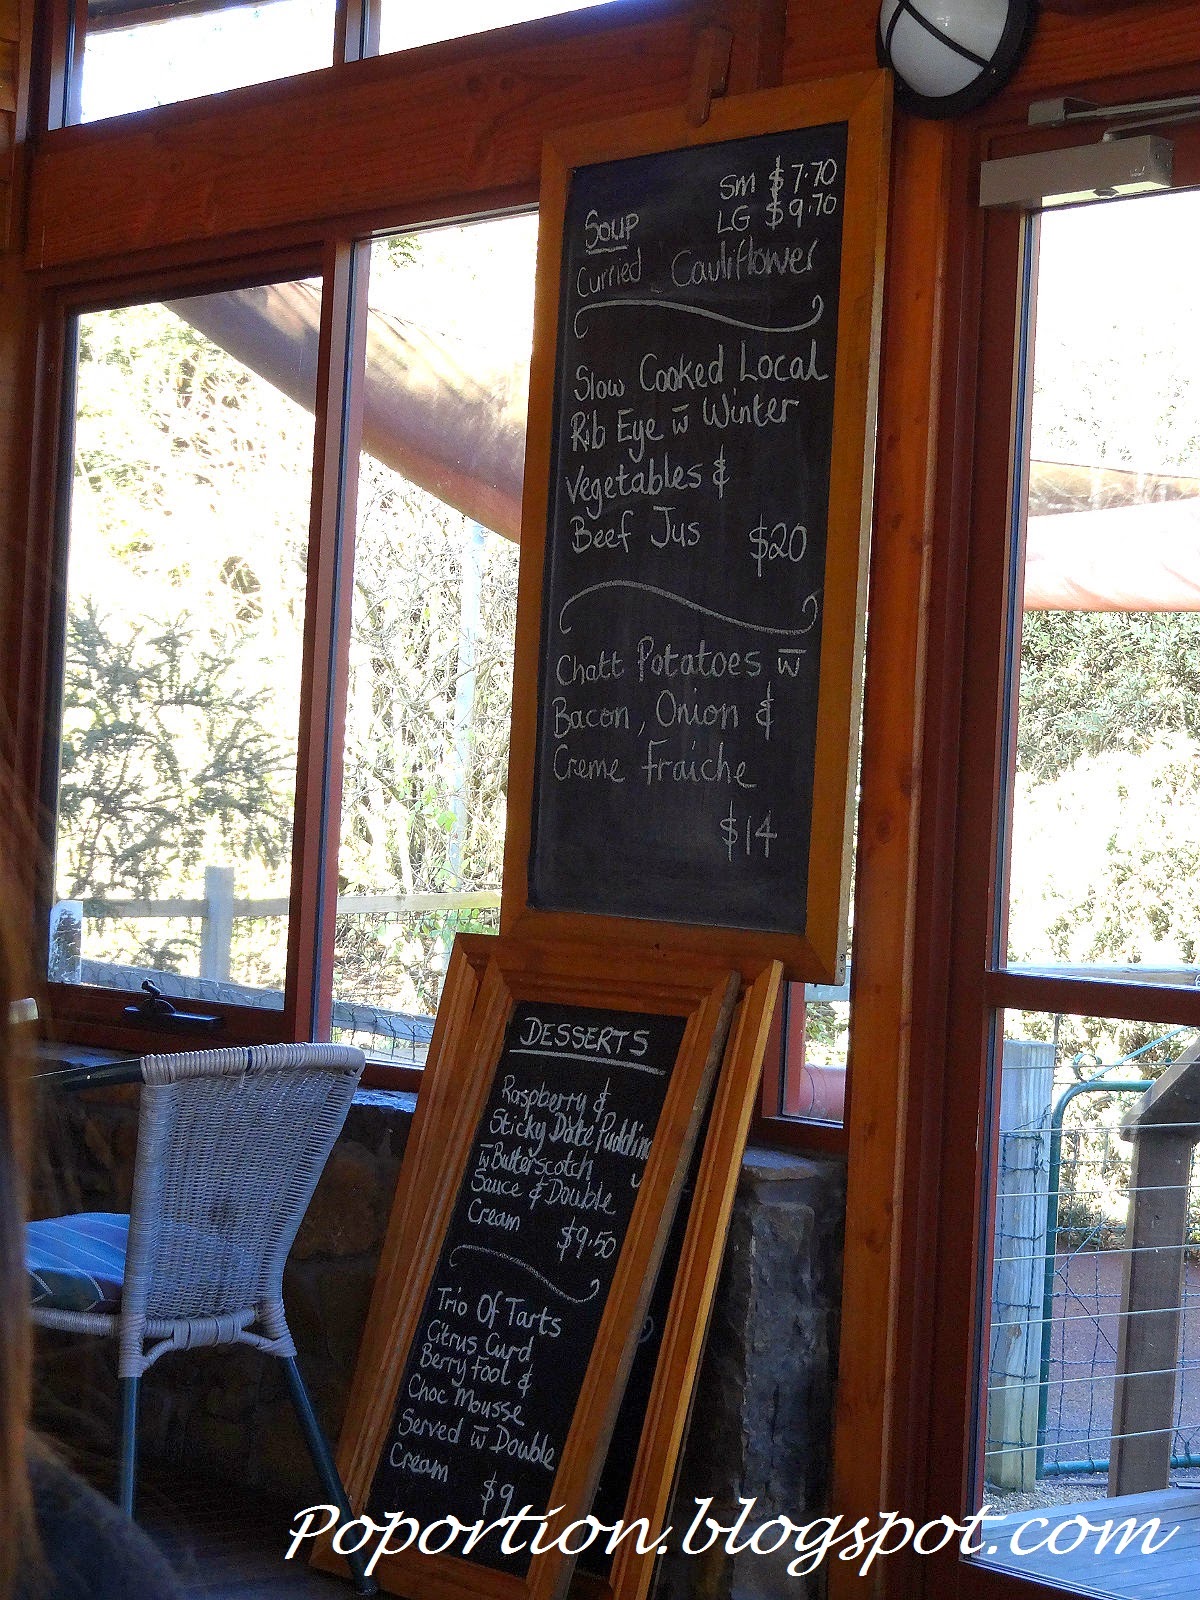 SM $7.70
Soup LG $9.70
Curried Cauliflower
Slow Cooked Local
Rib Eye w̅ Winter
Vegetables &
Beef Jus $20
Chatt Potatoes w̅
Bacon, Onion &
Creme Fraiche
$14
DESSERTS
Raspberry &
Sticky Date Pudding
w̅ Butterscotch
Sauce & Double
Cream $9.50
Trio Of Tarts
Citrus Curd
Berry Fool &
Choc Mousse
Served w̅ Double
Cream
$9
Poportion.blogspot.com